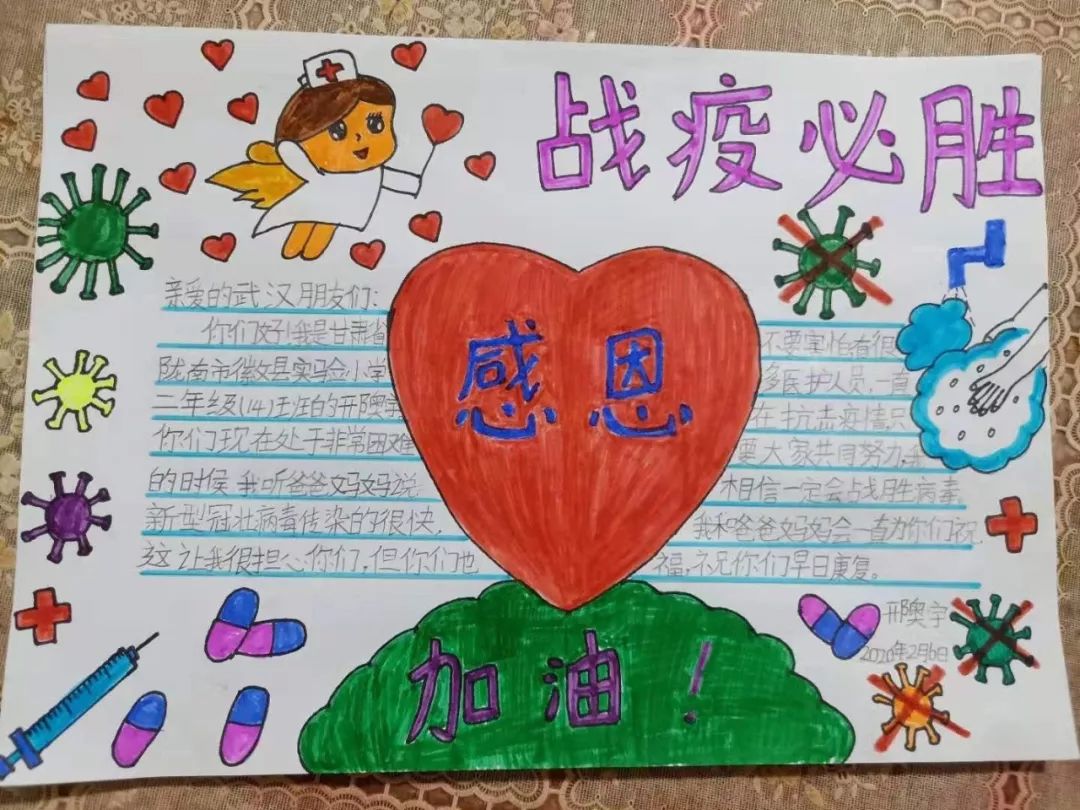 战疫必胜
感恩
亲爱的武汉朋友们:
你们好!我是甘肃省
陇南市徽县实验小学
二年级(14)班的邢奥宇
你们现在处于非常困难
的时候,我听爸爸妈妈说:
新型冠壮病毒传染的很快,
这让我很担心你们,但你们也
不要害怕有很
多医护人员一直
在抗击疫情,只
要大家共同努力,我
相信一定会战胜病毒.
我和爸爸妈妈会一直为你们祝
福,祝你们早日康复。
邢奥宇
2020年2月6日
加油!